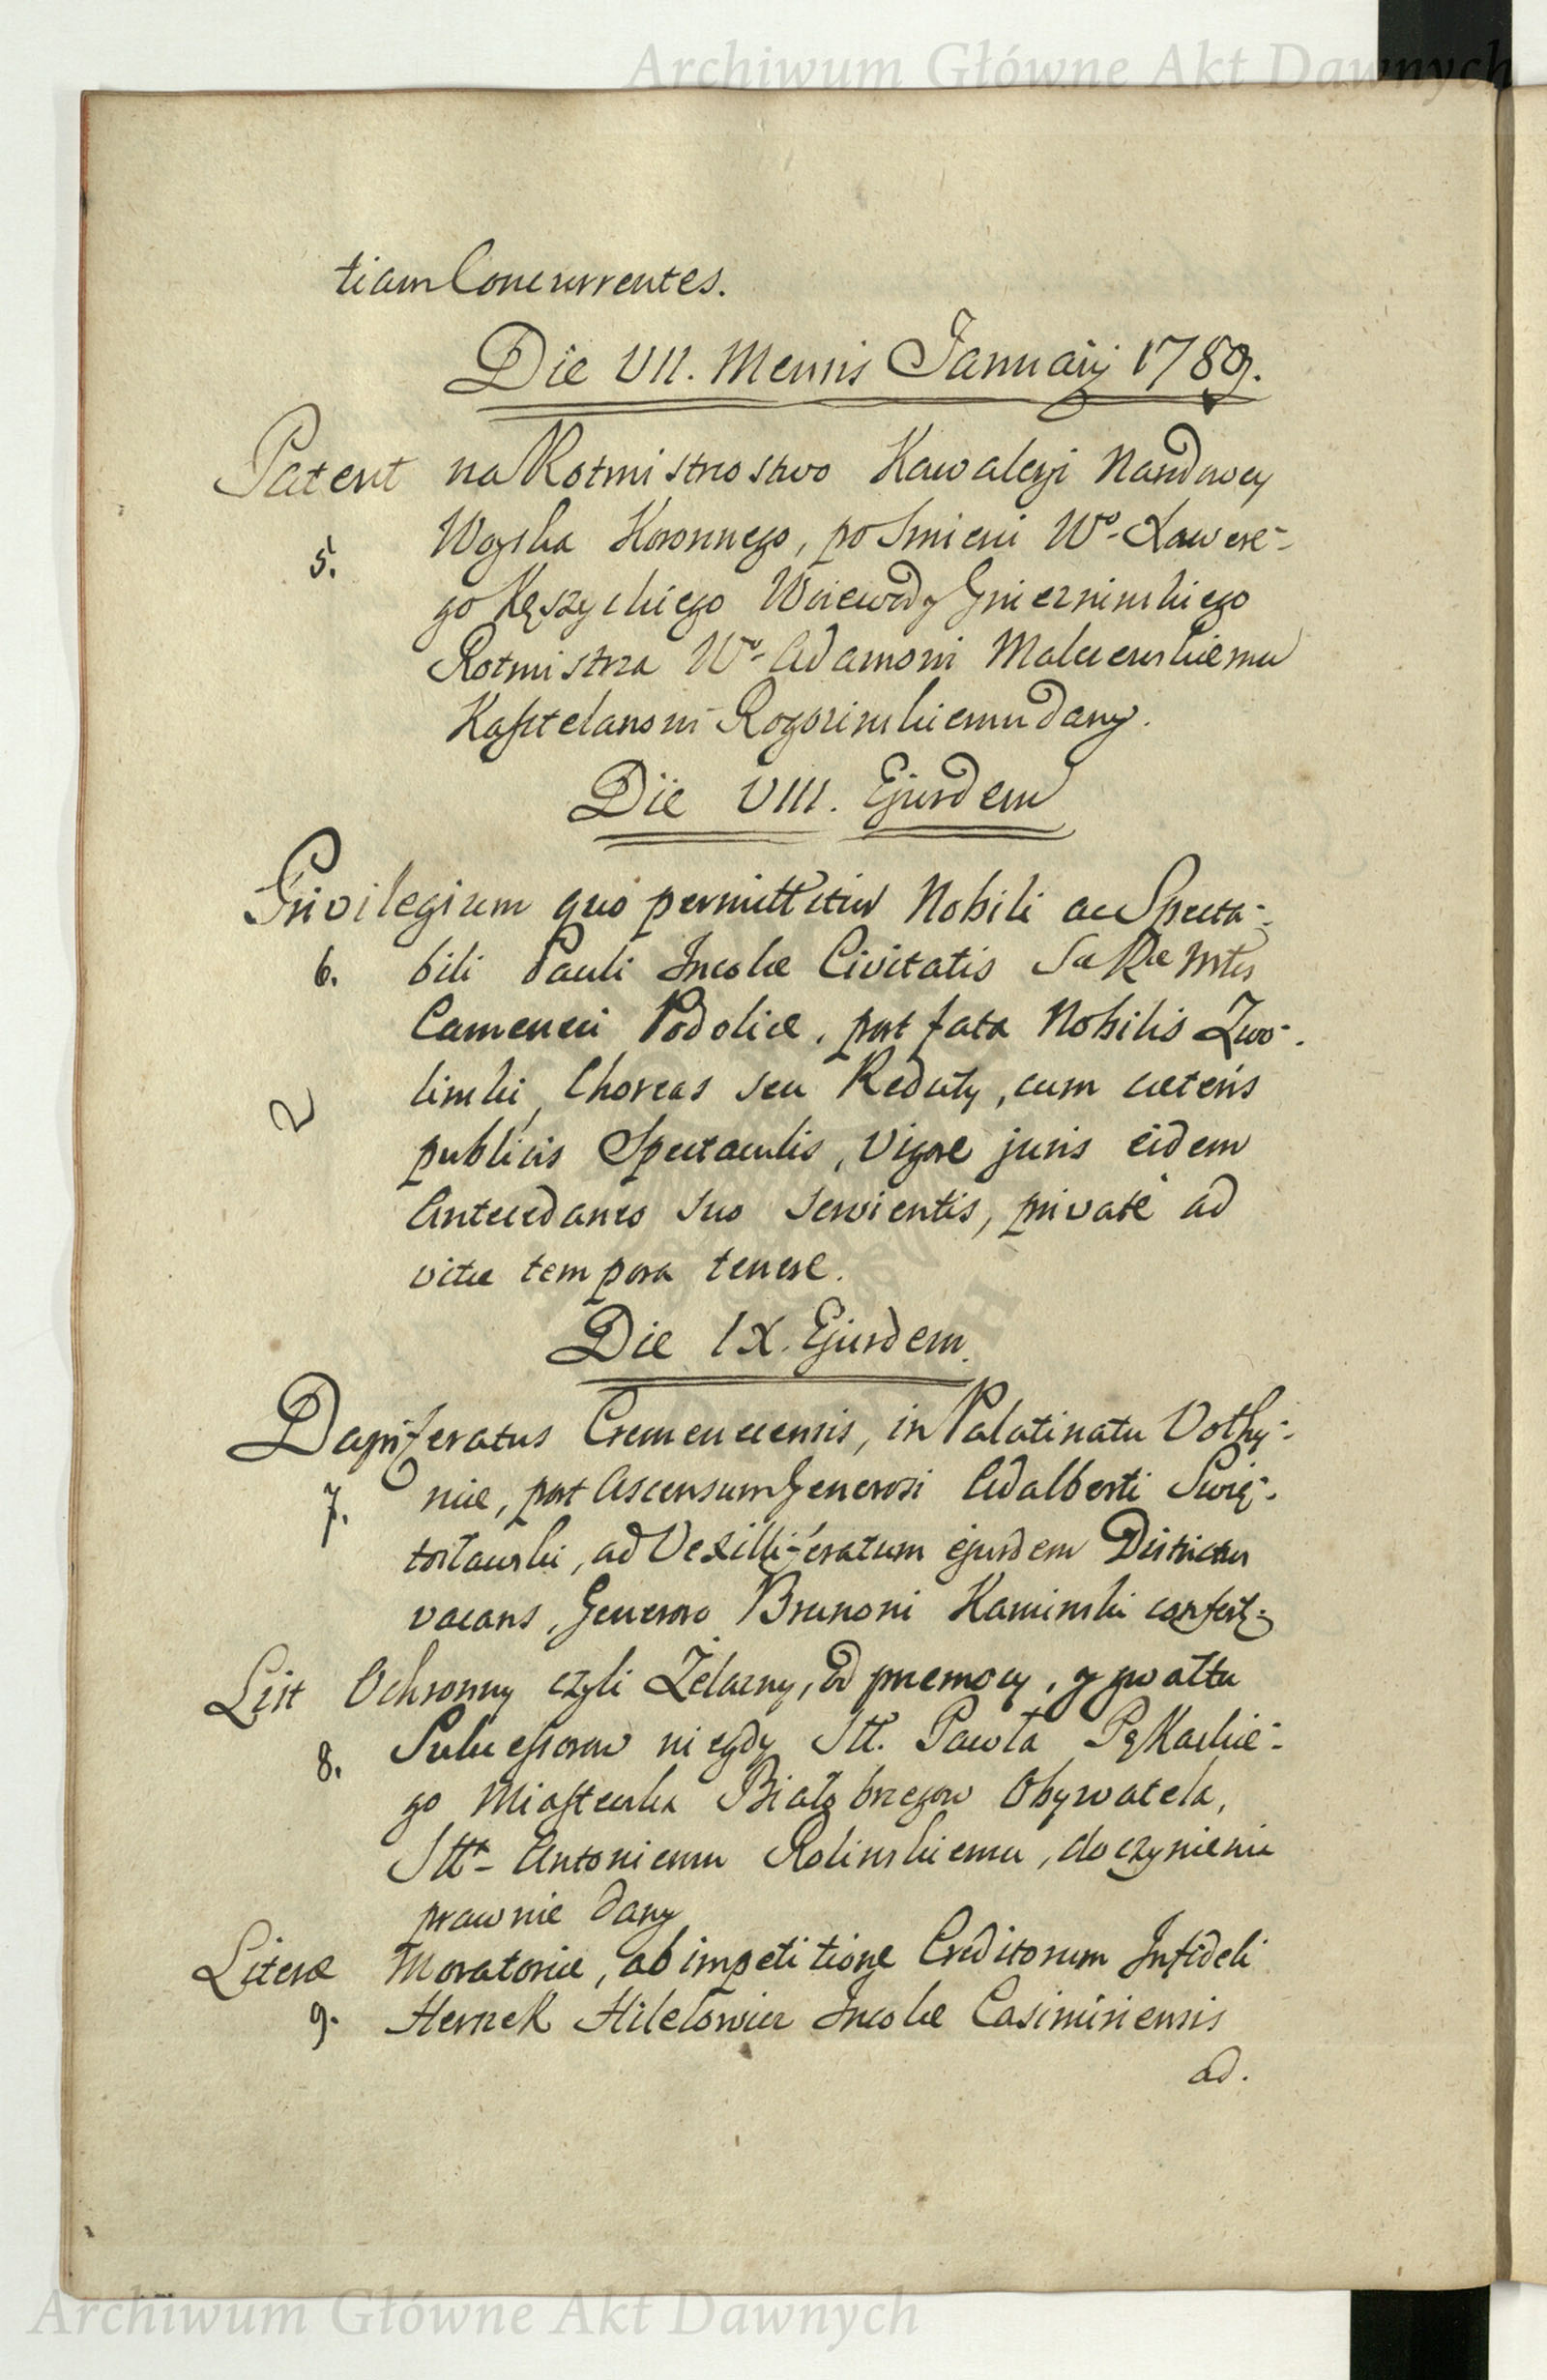 Archiwum Główne Akt Dawnych
tiam Concurrentes.
Die VII. Mensis Januarij 1789.
Patent na Rotmistrzostwo Kawaleryi Narodowey
5. Woyska Koronnego, po Smierci Wo- Xawere-
go Kęszyckiego Woiewody Gniezninskiego
Rotmistrza Wo- Adamowi Malczewskiemu
Kasztelanowi Rogozinskiemu dany.
Die VIII. Ejusdem
Privilegium quo permittitur Nobili ac Specta-
6. bili Pauli Incolæ Civitatis Sæ Ræ Mtis
Cameneci Podoliæ, post fata Nobilis Zwo-
2 linski, Choreas seu Reduty, cum cæteris
publicis Spectaculis, vigore juris eidem
Antecedaneo suo servientis, privatè ad
vitæ tempora tenere.
Die IX. Ejusdem.
Dapiferatus Cremenecensis, in Palatinatu Volhy-
7. niæ, post Ascensum Generosi Adalberti Swię-
tosławski, ad Vexilliferatum ejusdem Districtus
vacans, Generoso Brunoni Kaminski confert-
List Ochronny czyli Zelazny, od przemocy, y gwałtu
8. Sukcessorow niegdy Stt. Pawła
go Miasteczka Białobrzegow Obywatela,
Stt- Antoniemu Rolinskiemu, do czynienia
prawnie dany
Literæ Moratoriæ, ab impetitione Creditorum Infideli
9. Herszek Incolæ Casimiriensis
ad.
Archiwum Główne Akt Dawnych